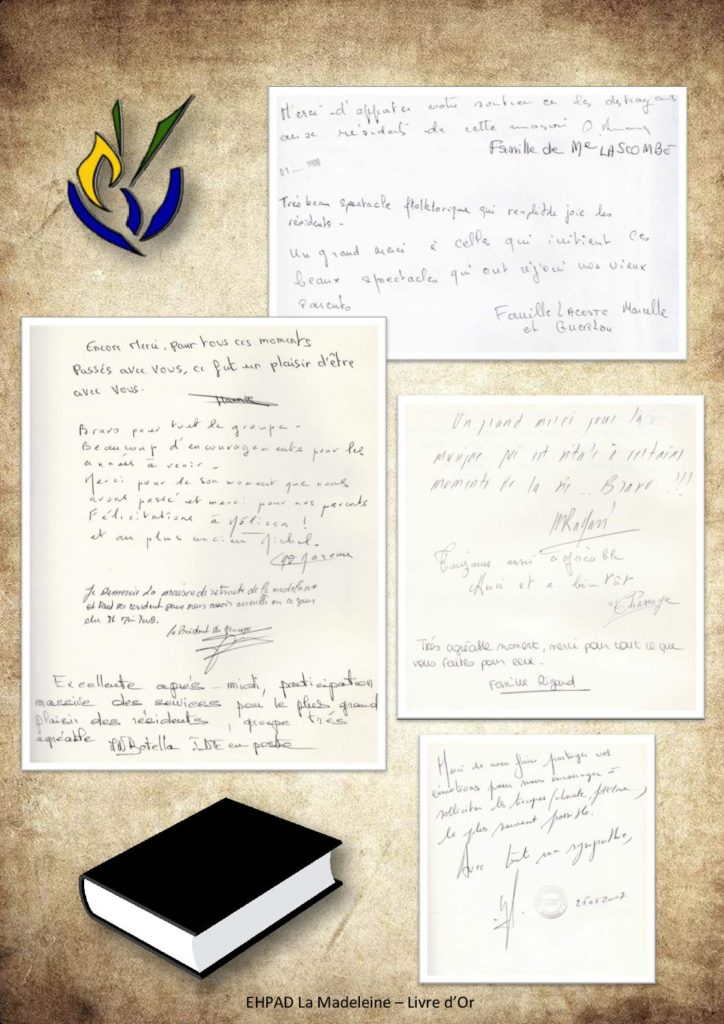 Merci d'apporter votre soutien en les distrayant
aux résidents de cette maison
Famille de Me LASCOMBE
01 2008
Très beau spectacle ftolklorique qui remplit de joie les
résidents -
Un grand merci à celles qui initient ces
beaux spectacles qui ont réjoui nos vieux
parents
Famille LACOSTE Marcelle
et
Encore Merci. pour tous ces moments
Passés avec vous, ce fut un plaisir d'être
avec vous.
Bravo pour tout le groupe -
Beaucoup d'encouragements pour les
années à venir -
Merci pour le bon moment que nous
avons passé et merci pour nos parents
Félicitations à Mélissa !
et au plus ancien Michel -
Moreau
Je Remercie La maison de retraite de la madeleine
et tout les resident pour nous avoir accueilli en ce jour
du 21 Mai 2008.
Le Président du groupe
Excellente après-midi, participation
massive des services pour le plus grand
plaisir des résidents, groupe très
agréable Botella IDE en poste
Un grand merci pour la
musique qui est vitale à certains
moments de la vie ... Bravo !!!
Toujours aussi agréable
Merci et a bientôt
Très agréable moment, merci pour tout ce que
vous faites pour eux.
Famille Rigaud
Merci de nous faire partager vos
émotions pour nous encourager à
solliciter les troupes (chorale, ...)
le plus souvent possible.
Avec toute ma sympathie,
26052007
EHPAD La Madeleine – Livre d'Or